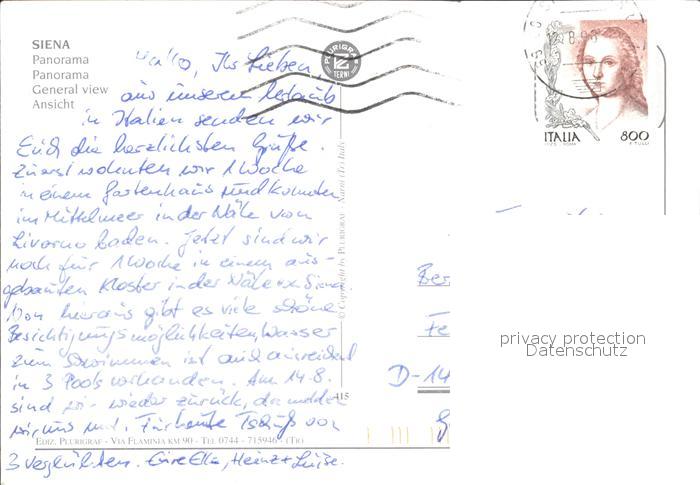 SIENA
Panorama
Panorama
General view
Ansicht
Hallo, Ihr Lieben,
aus unserem Urlaub
in Italien senden wir
Euch die herzlichsten Grüße.
Zuerst wohnten wir 1 Woche
in einem Gartenhaus und konnten
im Mittelmeer in der Nähe von
Livorno baden. Jetzt sind wir
noch für 1 Woche in einem aus-
gebauten Kloster in der Nähe v. Siena.
Von hieraus gibt es viele schöne
Besichtigungsmöglichkeiten, Wasser
zum Schwimmen ist auch ausreichend
in 3 Pools vorhanden. Am 14.8.
sind wir wieder zurück, da melden
wir uns mal. Für heute Tschüß von
3 Verglühten. Eure Elke, Heinz + Luise.
EDIZ. PLURIGRAF - VIA FLAMINIA KM 90 - TEL 0744 - 715946 - (TR)
PLURIGRAF
TERNI
© Copyright by PLURIGRAF - Narni (Tr) Italy
115
ITALIA 800
I.P.Z.S. ROMA
Fe
D-14
privacy protection
Datenschutz